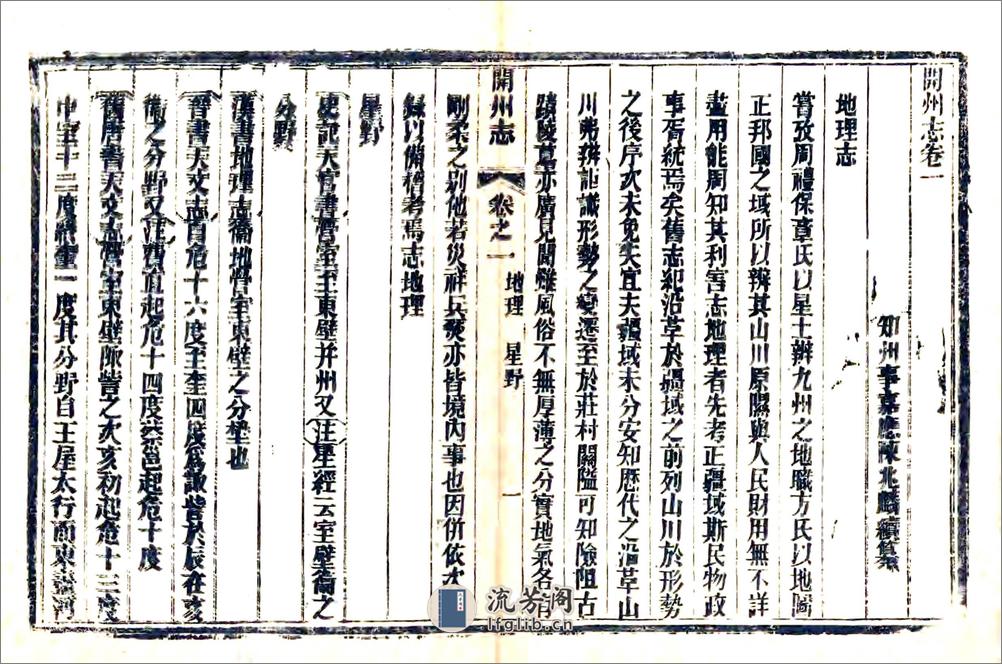 開州志卷一
知州事嘉應陳兆麟續纂
地理志
嘗攷周禮保章氏以星土辨九州之地職方氏以地圖
正邦國之域所以辨其山川原隰與人民財用無不詳
盡用能周知其利害志地理者先考正疆域斯民物政
事胥統焉矣舊志紀沿革於疆域之前列山川於形勢
之後序次未免失宜夫疆域未分安知歷代之沿革山
川弗辨詎識形勢之變遷至於莊村關隘可知險阻古
蹟陵墓亦廣見聞雖風俗不無厚薄之分實地氣各有
剛柔之别他若災祥兵燹亦皆境內事也因併依次
錄以備稽考焉志地理
星野
開州志
卷之一
地理 星野
一
史記天官書營室至東壁并州又注星經云室壁衞之
分野
漢書地理志衞地營室東壁之分壄也
晉書天文志自危十六度至奎四度爲諏訾於辰在亥
衞之分野又注費直起危十四度蔡邕起危十度
舊唐書天文志營室東壁陬訾之次亥初起危十三度
中室十二度終奎一度其分野自王屋太行而東
流芳阁
lfglib.cn